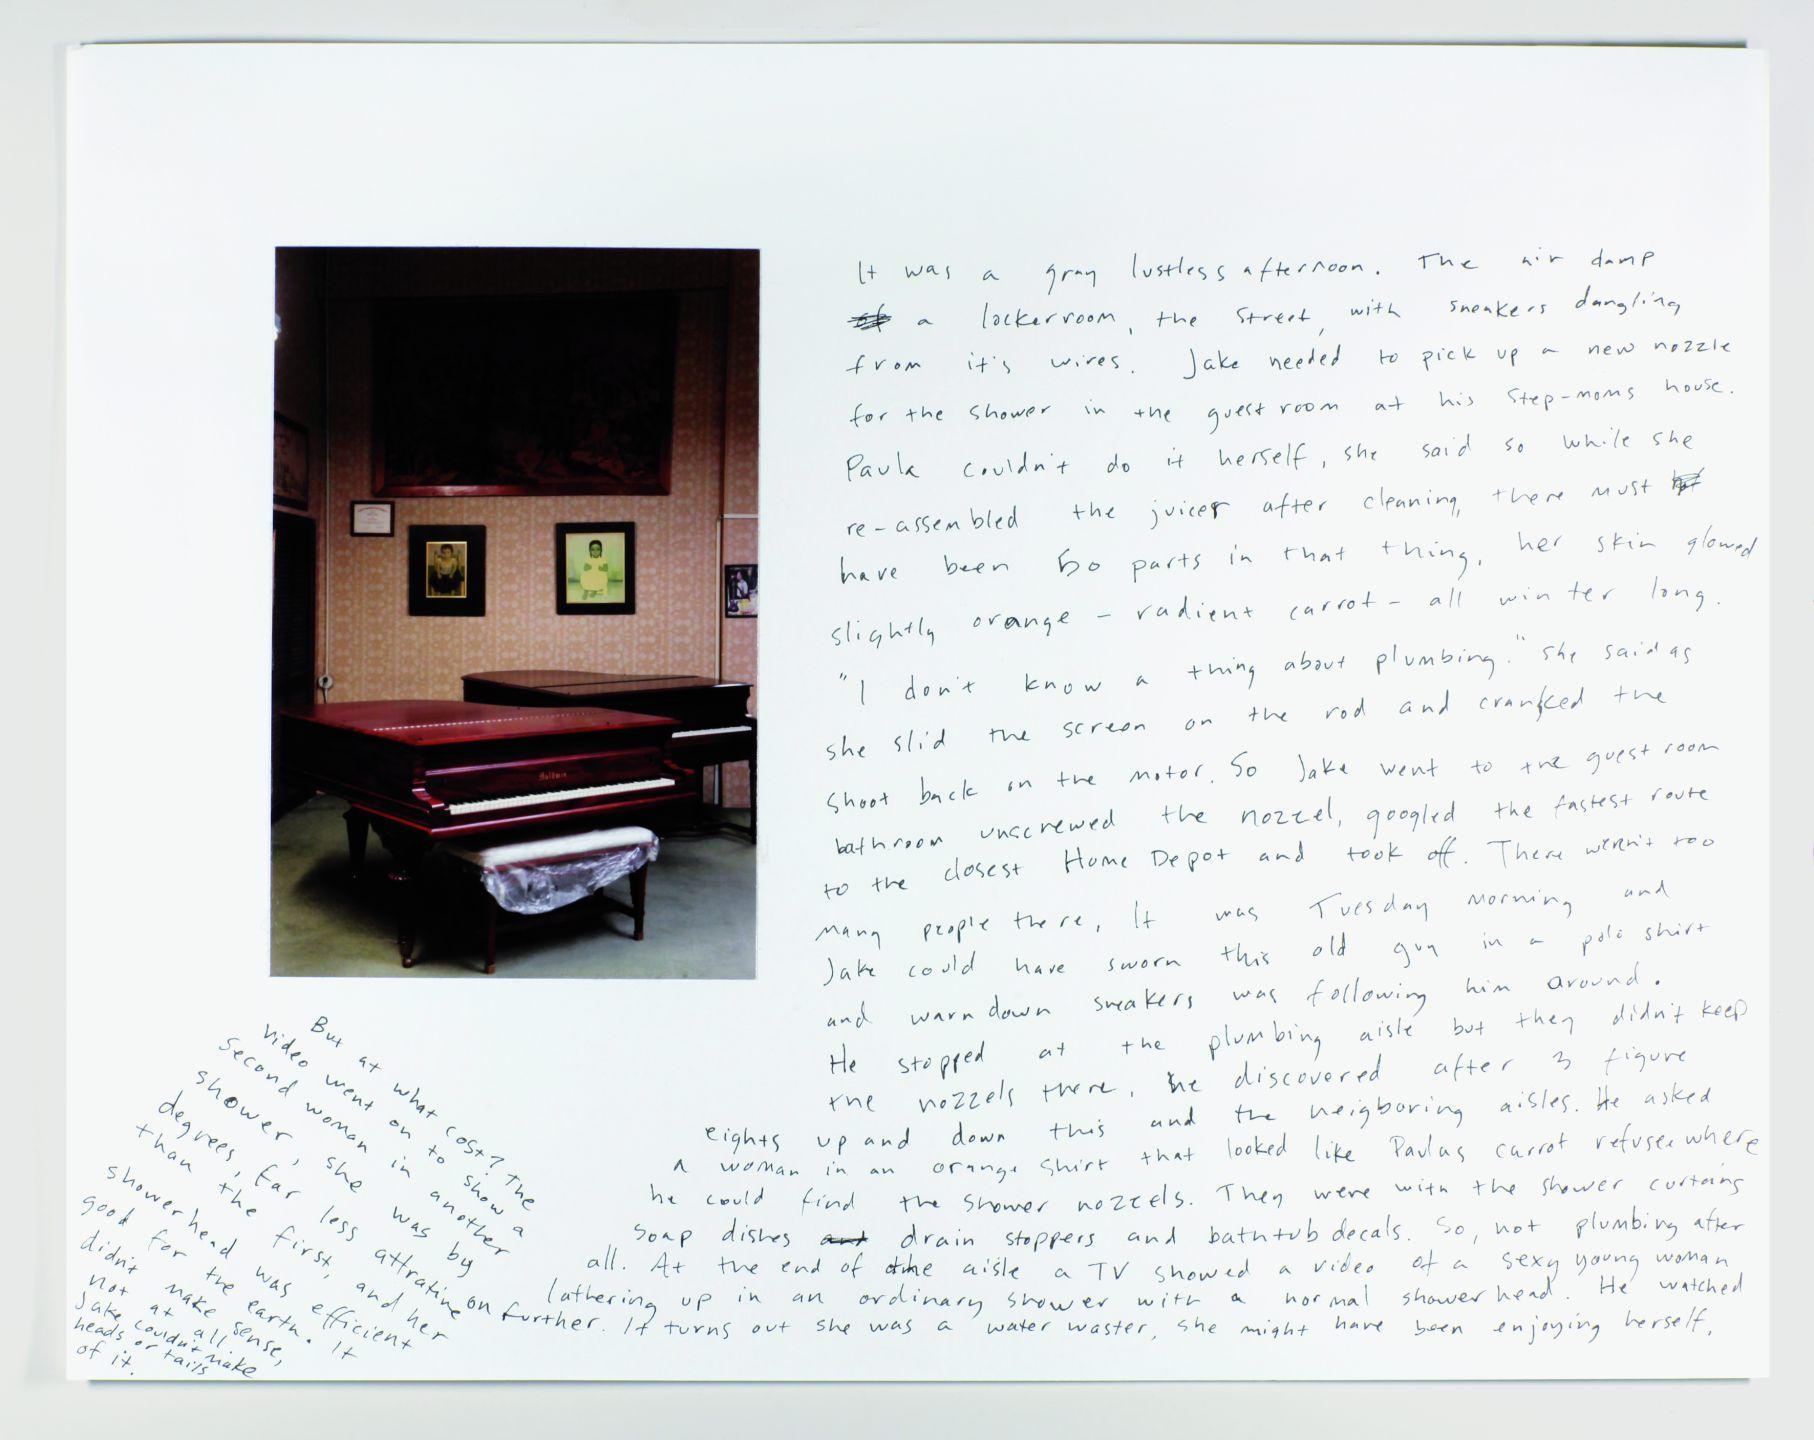 Baldwin
It was a gray lustless afternoon. The air damp
of a lockerroom, the street, with sneakers dangling
from it's wires. Jake needed to pick up a new nozzle
for the shower in the guest room at his step-moms house.
Paula couldn't do it herself, she said so while she
re-assembled the juicer after cleaning, there must
have been 50 parts in that thing, her skin glowed
slightly orange - radient carrot - all winter long.
"I don't know a thing about plumbing." she said as
she slid the screen on the rod and cranked the
shoot back on the motor. So Jake went to the guest room
bathroom unscrewed the nozzel, googled the fastest route
to the closest Home Depot and took off. There weren't too
many people there, It was Tuesday morning and
Jake could have sworn this old guy in a polo shirt
and warn down sneakers was following him around.
He stopped at the plumbing aisle but they didn't keep
the nozzels there, he discovered after 3 figure
eights up and down this and the neigboring aisles. He asked
a woman in an orange shirt that looked like Paulas carrot refuse where
he could find the shower nozzels. They were with the shower curtains
soap dishes and drain stoppers and bathtub decals. So, not plumbing after
all. At the end of the aisle a TV showed a video of a sexy young woman
lathering up in an ordinary shower with a normal showerhead. He watched
on further. It turns out she was a water waster, she might have been enjoying herself,
But at what cost? The
video went on to show a
second woman in another
shower, she was by
degrees, far less attrative
than the first, and her
showerhead was efficient
good for the earth. It
didn't make sense,
not at all.
Jake couldn't make
heads or tails
of it.